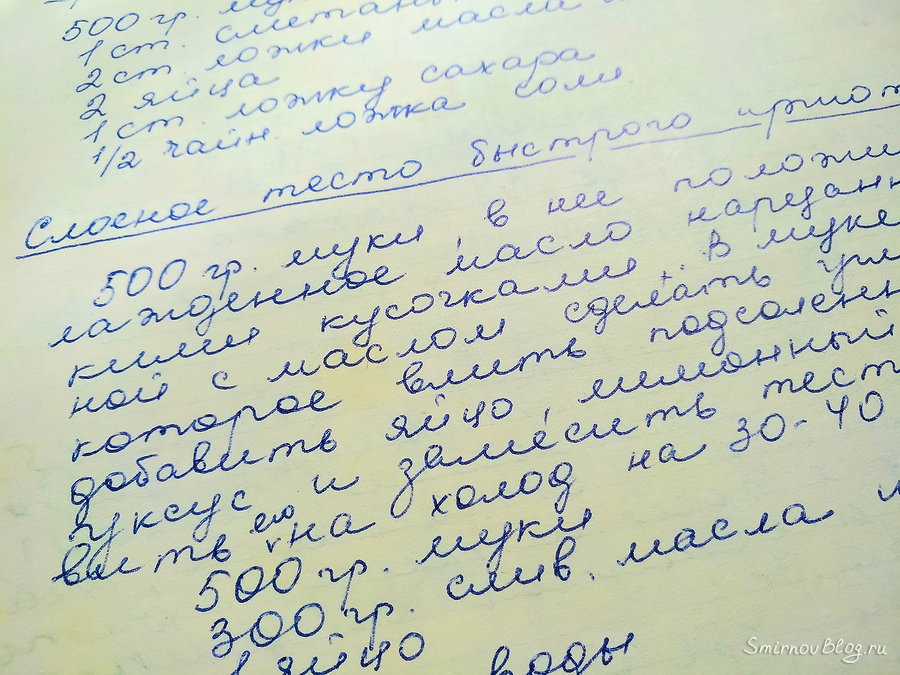 500 гр. му
1 ст. сметаны
2 ст. ложки масла
2 яйца
1 ст. ложку сахара
1/2 чайн. ложка соли.
Слоеное тесто быстрого пригот
500 гр. муки, в нее положи
лажденное масло нарезанн
кими кусочками. В муке
ной с маслом сделать угл
которое влить подсоленн
добавить яйцо, лимонный
уксус и замесить тест
вить его на холод на 30-40
500 гр. муки
300 гр. слив. масла и
1 яйцо воды
SmirnovBlog.ru